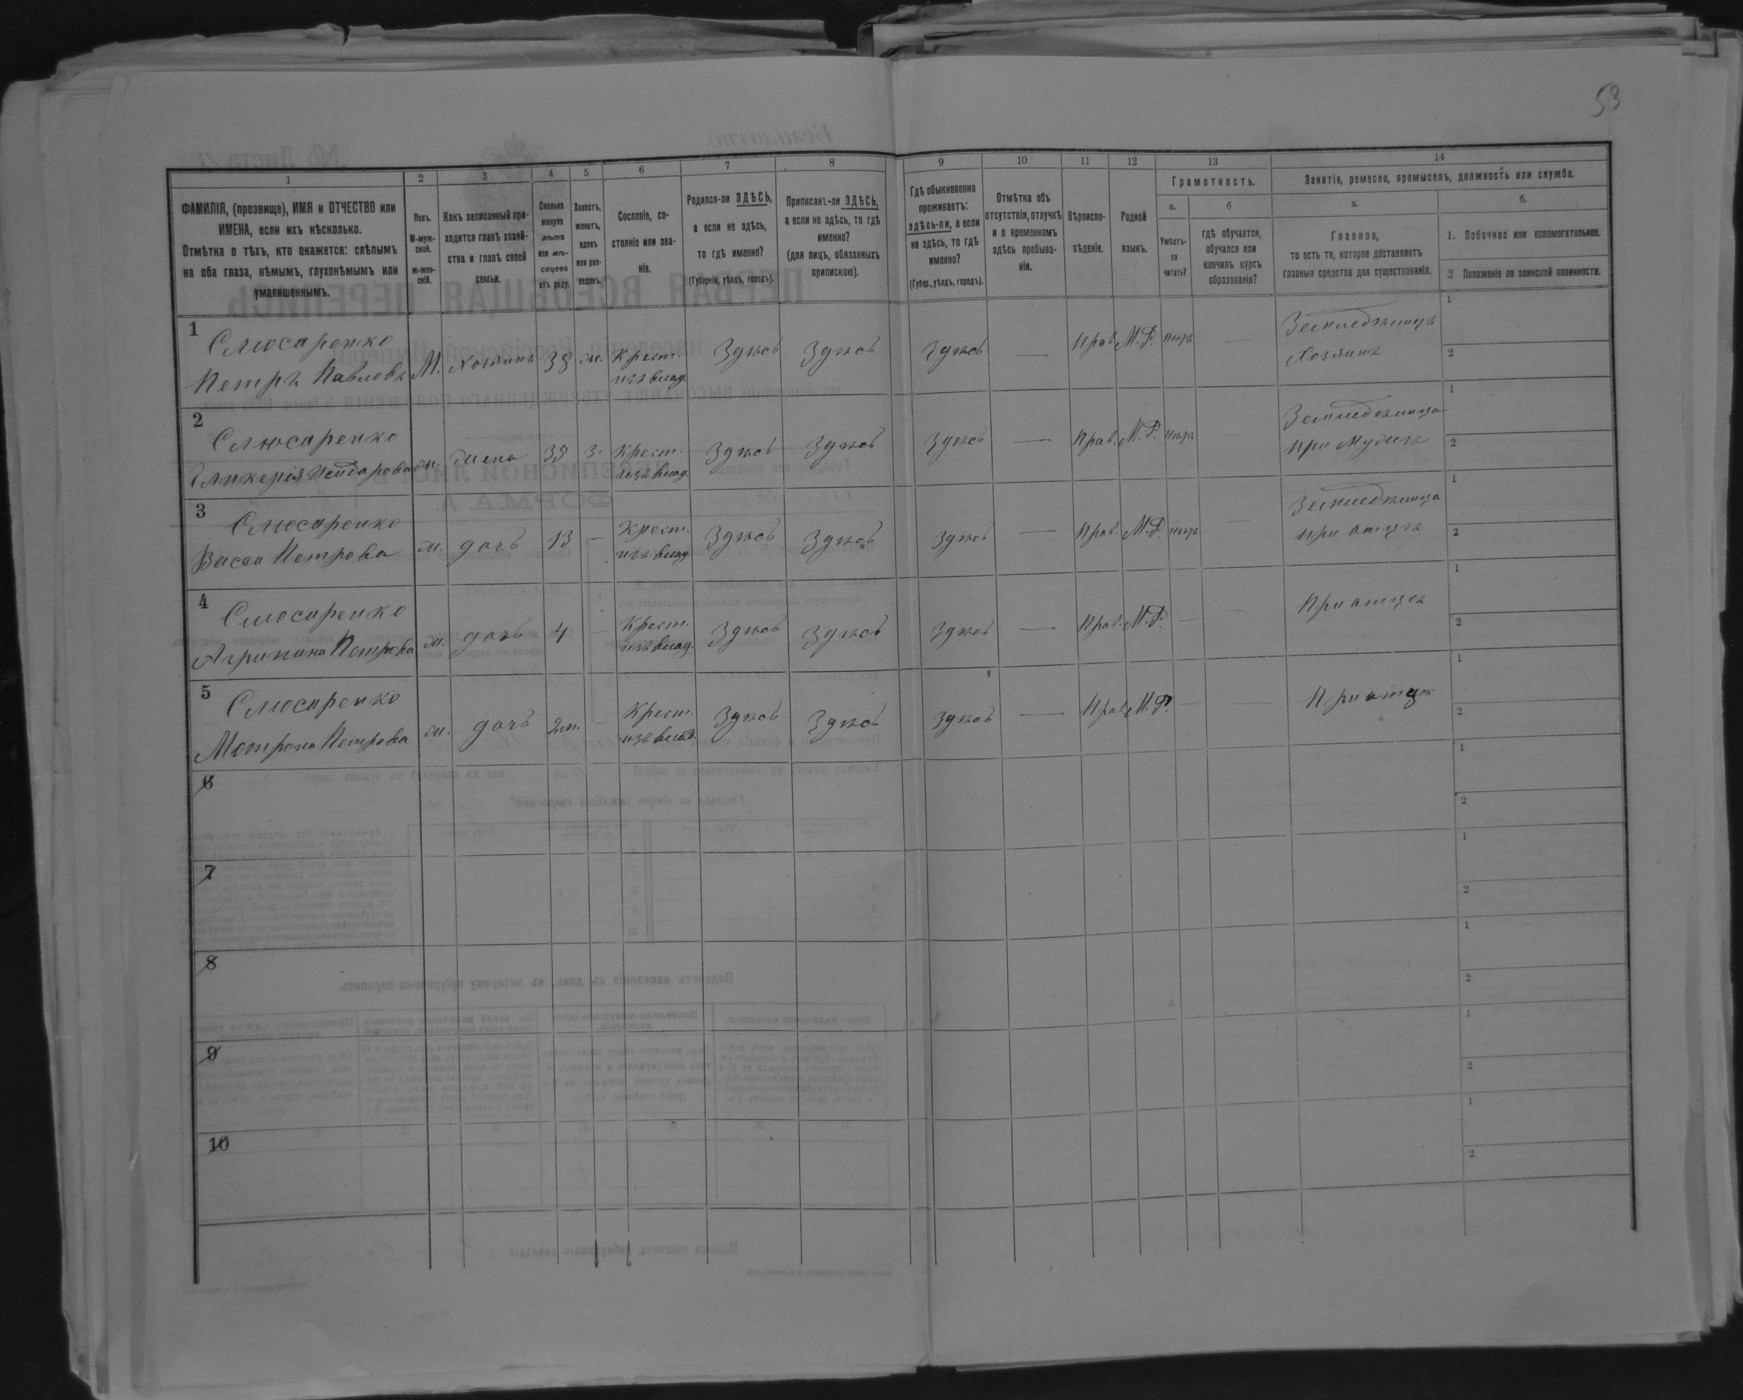 53
1
2
3
4
5
6
7
8
9
10
11
12
13
14
ФАМИЛІЯ, (прозвище), ИМЯ и ОТЧЕСТВО или
ИМЕНА, если ихъ нѣсколько.
Отмѣтка о тѣхъ, кто окажется: слѣпымъ
на оба глаза, нѣмымъ, глухонѣмымъ или
умалишеннымъ.
Полъ.
М-муж-
ской.
ж-жен-
скій.
Какъ записанный при-
ходится главѣ хозяй-
ства и главѣ своей
семьи.
Сколько
минуло
лѣтъ
или мѣ-
сяцевъ
отъ роду.
Холостъ,
женатъ,
вдовъ
или раз-
веденъ.
Сословіе, со-
стояніе или зва-
ніе.
Родился-ли ЗДѢСЬ,
а если не здѣсь,
то гдѣ именно?
(Губернія, уѣздъ, городъ).
Приписанъ-ли ЗДѢСЬ,
а если не здѣсь, то гдѣ
именно?
(для лицъ, обязанныхъ
припискою).
Гдѣ обыкновенно
проживаетъ:
здѣсь-ли, а если
не здѣсь, то гдѣ
именно?
(Губер., уѣздъ, городъ).
Отмѣтка объ
отсутствіи, отлучкѣ
и о временномъ
здѣсь пребыва-
ніи.
Вѣроиспо-
вѣданіе.
Родной
языкъ.
Грамотность.
а.
Умѣетъ-
ли
читать?
б
гдѣ обучается,
обучался или
кончилъ курсъ
образованія?
Занятіе, ремесло, промыселъ, должность или служба.
а.
Главное,
то есть то, которое доставляетъ
главныя средства для существованія.
б.
1. Побочное или вспомогательное.
2 Положеніе по воинской повинности.
1 Слюсаренко
Петръ Павловъ М. хозяинъ 38 ж. Крест. изъ влад. Здѣсь Здѣсь Здѣсь — Прав. М.Р. нѣтъ — Земледѣлецъ Хозяинъ 1 2
2 Слюсаренко
Гликерія Исидорова ж. жена 39 з. Крест. изъ влад. Здѣсь Здѣсь Здѣсь — Прав. М.Р. нѣтъ — Земледѣлица при мужѣ 1 2
3 Слюсаренко
Васса Петрова ж. дочь 13 — Крест. изъ влад. Здѣсь Здѣсь Здѣсь — Прав. М.Р. нѣтъ — Земледѣлица при отцѣ 1 2
4 Слюсаренко
Агрипина Петрова ж. дочь 4 — Крест. изъ влад. Здѣсь Здѣсь Здѣсь — Прав. М.Р. — — При отцѣ 1 2
5 Слюсаренко
Мотрона Петрова ж. дочь 2 м. — Крест. изъ влад. Здѣсь Здѣсь Здѣсь — Прав. М.Р. — — При отцѣ 1 2
6 1 2
7 1 2
8 1 2
9 1 2
10 1 2